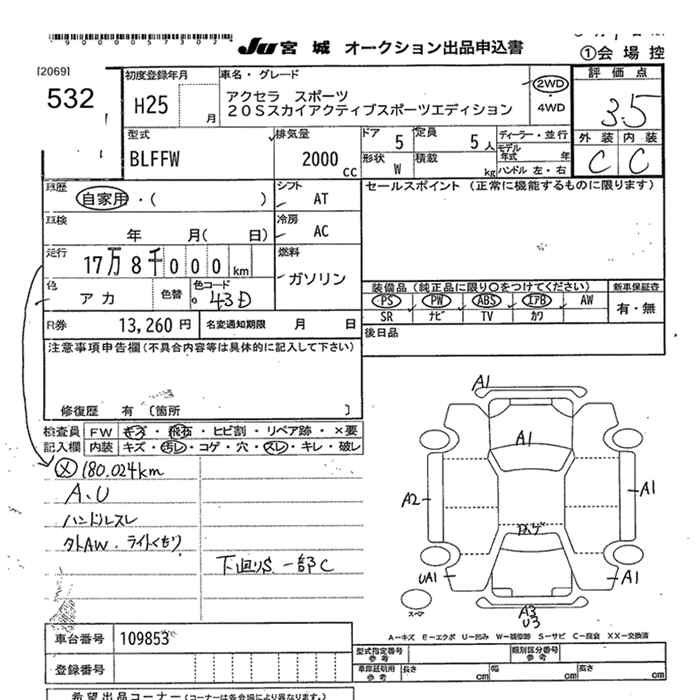 90000573027
JU 宮城 オークション出品申込書
①会場控
[2069]
532
初度登録年月
H25 月
車名・グレード
アクセラ スポーツ
20Sスカイアクティブスポーツエディション
2WD
・
4WD
評価点
3.5
型式
BLFFW
排気量
2000 CC
ドア 5
定員 5 人
形状 W
積載 kg
ディーラー・並行
モデル年式 年
ハンドル 左・右
外装 内装
C C
車歴
自家用・( )
シフト AT
セールスポイント (正常に機能するものに限ります)
車検
年 月( 日)
冷房 AC
走行
17万8千000 km
燃料
ガソリン
色
アカ
色替
色コード
43D
装備品 (純正品に限り○をつけてください)
新車保証書
PS PW ABS エアB AW
有・無
SR ナビ TV カワ
R券 13,260 円
名変通知期限 月 日
後日品
注意事項申告欄 (不具合内容等は具体的に記入して下さい)
修復歴 有 〔箇所 〕
検査員
記入欄
FW キズ・飛石・ヒビ割・リペア跡・×要
内装 キズ・汚レ・コゲ・穴・スレ・キレ・破レ
メ 180.024km
A、U
ハンドルスレ
タトAW・ライトくもり
下廻りS 一部C
A1
A1
A2
A1
UA1
A1
A3
U3
スペア
A−キズ E−エクボ U−凹み W−補修跡 S−サビ C−腐食 XX−交換済
車台番号 109853
型式指定番号
参考
類別区分番号
参考
登録番号
車庫証明用
参考
長さ cm
幅 cm
高さ cm
希望出品コーナー (コーナーは各会場により異なります。)